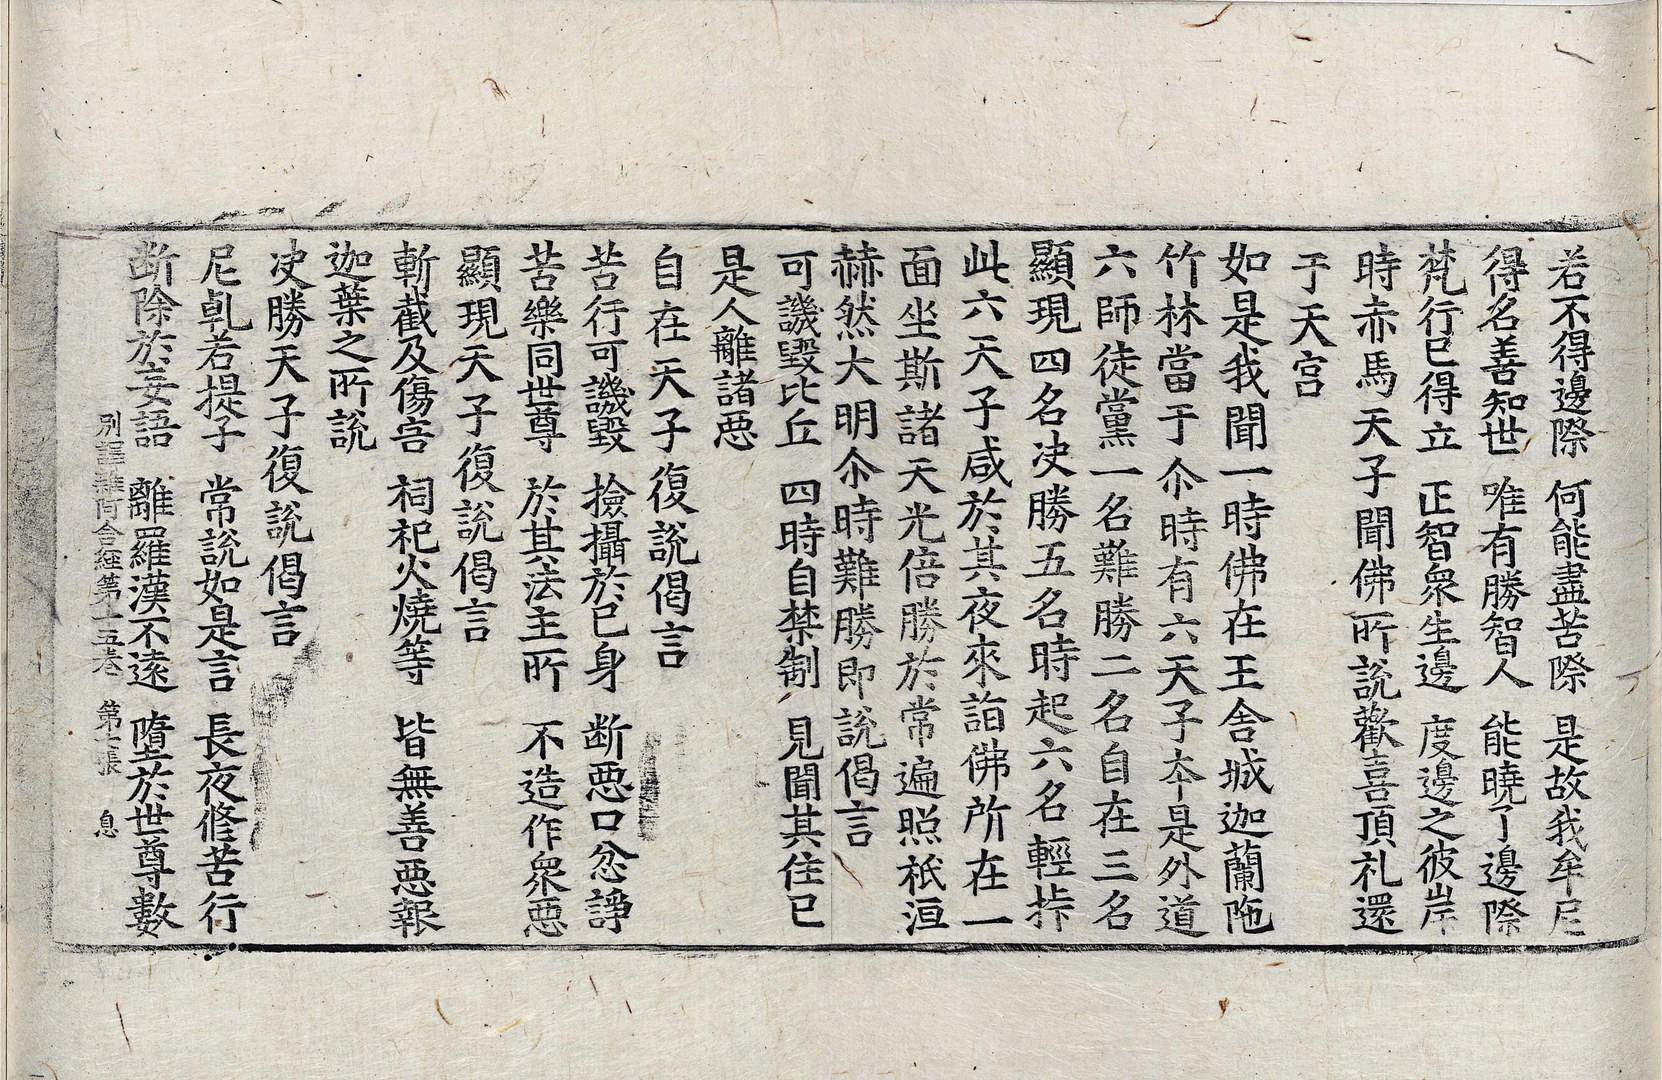 若不得邊際 何能盡苦際 是故我牟尼
得名善知世 唯有勝智人 能曉了邊際
梵行已得立 正智衆生邊 度邊之彼岸
時赤馬天子聞佛所說歡喜頂礼還
于天宮
如是我聞一時佛在王舍城迦蘭陁
竹林當于尒時有六天子夲是外道
六師徒黨一名難勝二名自在三名
顯現四名决勝五名時起六名輕𢪛
此六天子咸於其夜來詣佛所在一
面坐斯諸天光倍勝於常遍照祇洹
赫然大明尒時難勝即說偈言
可譏毀比丘 四時自禁制 見聞其住已
是人離諸惡
自在天子復說偈言
苦行可譏毀 撿攝於已身 断惡口忿諍
苦樂同世尊 於其法主所 不造作衆惡
顯現天子復說偈言
斬截及傷害 祠祀火燒等 皆無善惡報
迦葉之所說
决勝天子復說偈言
尼乹若提子 常說如是言 長夜修苦行
断除於妄語 離羅漢不遠 墮於世尊數
別譯雜阿含經第十五卷 第七張 息